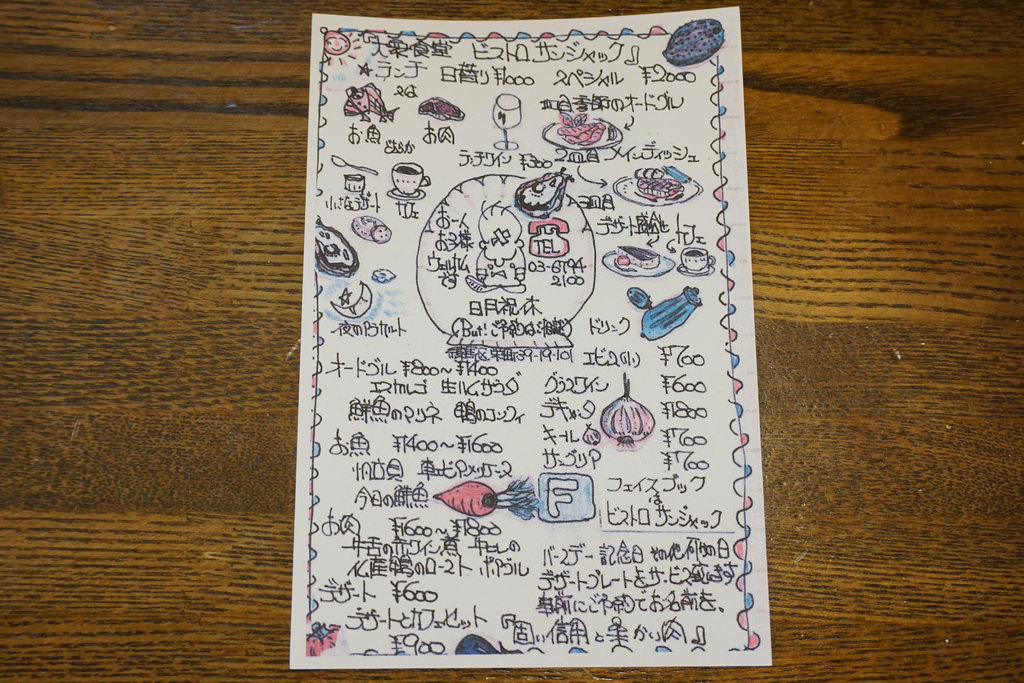 大衆食堂 ビストロ サンジャック』
★ランチ 日替り ¥1000 スペシャル ¥2000
お魚 お肉
どちらか
一皿目 季節のオードブル
ランチワイン ¥300
二皿目 メインディッシュ
小さなデザート カフェ
三皿目
デザート盛合せ カフェ
お一人
お子様
ウェルカム
です
TEL
03-6794
2100
日月祝休
(But! ご予約はご相談)
39-19-101
夜のアラカルト
オードブル ¥800〜¥1400
エスカルゴ 生ハムサラダ
鮮魚のマリネ 鴨のコンフィ
お魚 ¥1400〜¥1600
帆立貝 車エビアメリケーヌ
今日の鮮魚
お肉 ¥1600〜¥1800
牛舌の赤ワイン煮 牛ヒレの
仏産鴨のロースト ポワブル
デザート ¥600
デザートとカフェセット
¥900
ドリンク
エビス(小) ¥700
グラスワイン ¥600
デキャンタ ¥1800
キール ¥700
サングリア ¥700
F
フェイスブック
は
ビストロ サンジャック
バースデー 記念日 その他何かの日
デザートプレートをサービス致します
事前にご予約でお名前を、
『固い信用と柔かい肉』